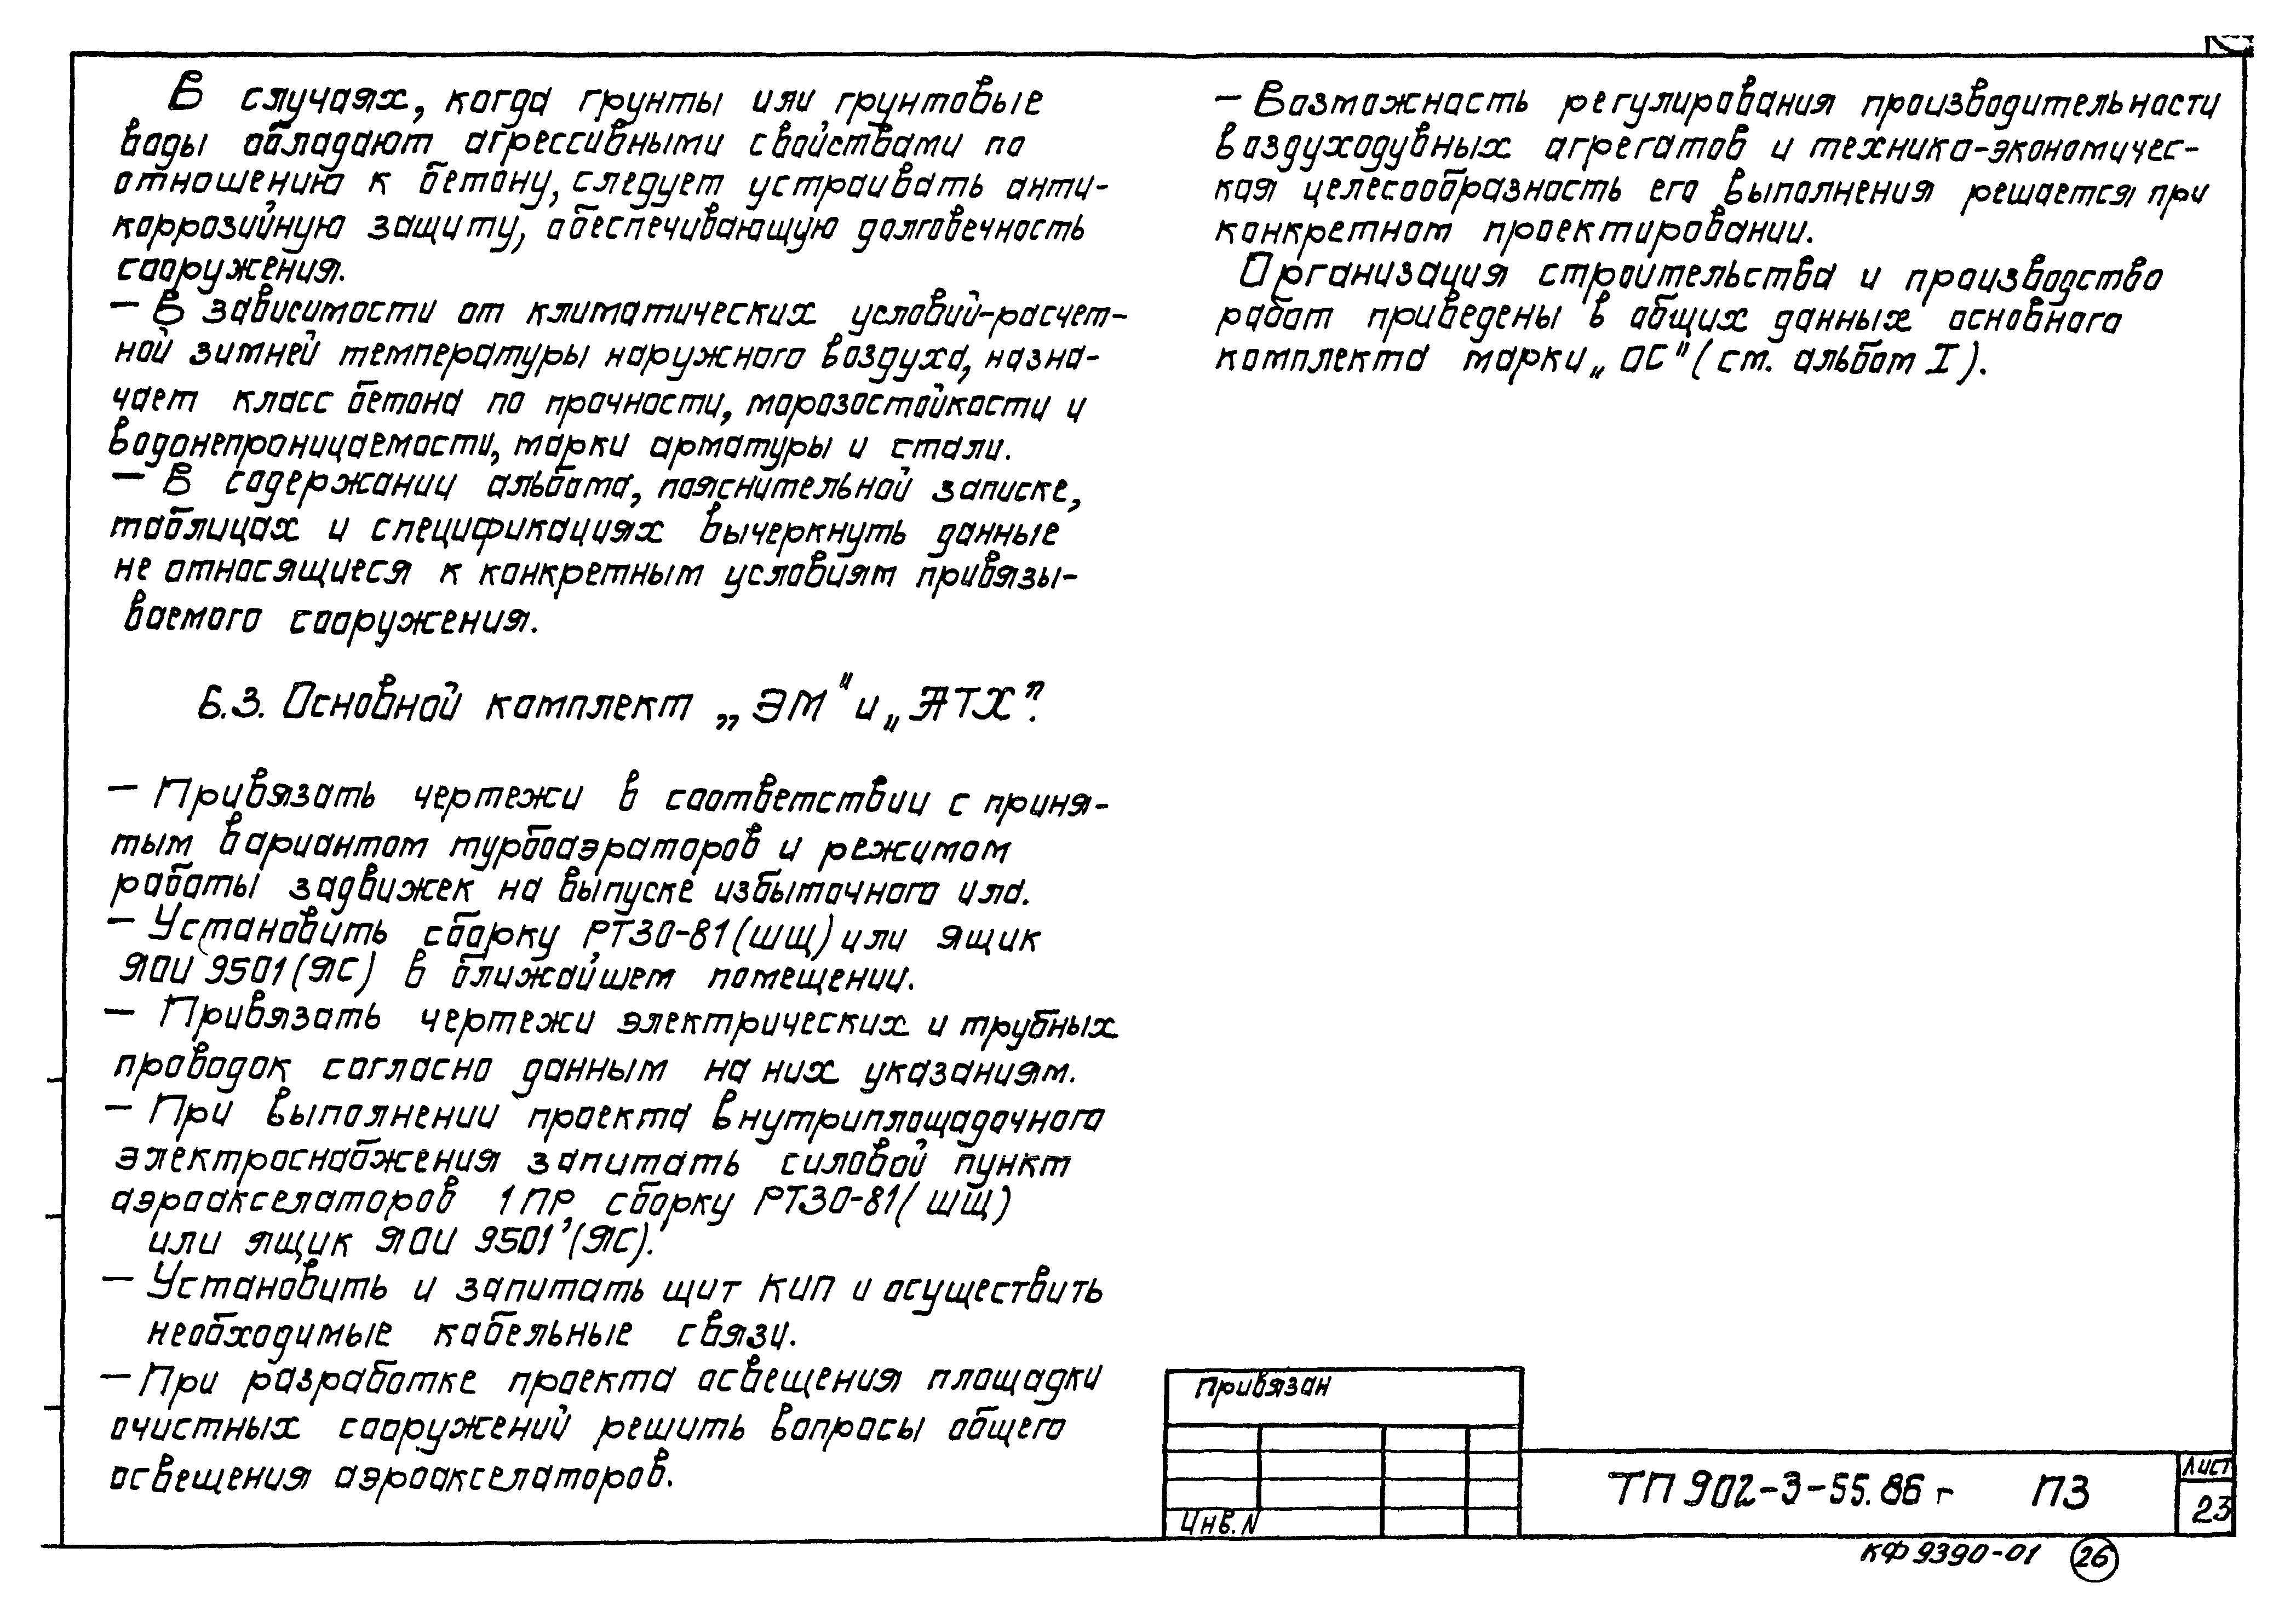 В случаях, когда грунты или грунтовые
воды обладают агрессивными свойствами по
отношению к бетону, следует устраивать анти-
коррозийную защиту, обеспечивающую долговечность
сооружения.
— В зависимости от климатических условий-расчет-
ной зимней температуры наружного воздуха, назна-
чает класс бетона по прочности, морозостойкости и
водонепроницаемости, марки арматуры и стали.
— В содержании альбома, пояснительной записке,
таблицах и спецификациях вычеркнуть данные
не относящиеся к конкретным условиям привязы-
ваемого сооружения.
6.3. Основной комплект „ЭМ" и „АТХ".
— Привязать чертежи в соответствии с приня-
тым вариантом турбоаэраторов и режимом
работы задвижек на выпуске избыточного ила.
— Установить сборку РТ30-81(ШЩ) или ящик
ЯОИ 9501(ЯС) в ближайшем помещении.
— Привязать чертежи электрических и трубных
проводок согласно данным на них указаниям.
— При выполнении проекта внутриплощадочного
электроснабжения запитать силовой пункт
аэроакселаторов 1ПР, сборку РТ30-81(ШЩ)
или ящик ЯОИ 9501 (ЯС).
— Установить и запитать щит КИП и осуществить
необходимые кабельные связи.
— При разработке проекта освещения площадки
очистных сооружений решить вопросы общего
освещения аэроакселаторов.
— Возможность регулирования производительности
воздуходувных агрегатов и технико-экономичес-
кая целесообразность его выполнения решается при
конкретном проектировании.
Организация строительства и производство
работ приведены в общих данных основного
комплекта марки „ОС" (см. альбом I).
Привязан
Инв. N
ТП 902-3-55.86 г ПЗ
Лист
23
КФ 9390-01 26